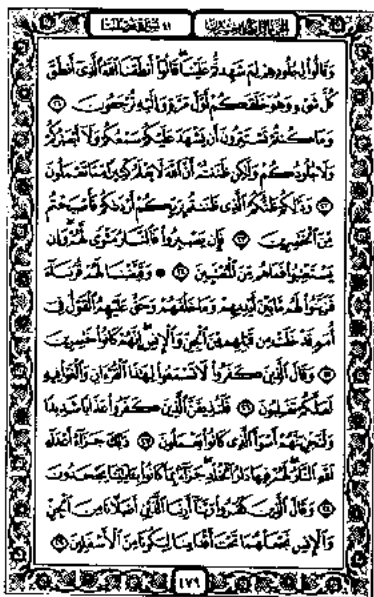 الجزء الرابع والعشرون
٤١ سورة فصلت
وَقَالُوا لِجُلُودِهِمْ لِمَ شَهِدتُّمْ عَلَيْنَا قَالُوا أَنطَقَنَا اللَّهُ الَّذِي أَنطَقَ
كُلَّ شَيْءٍ وَهُوَ خَلَقَكُمْ أَوَّلَ مَرَّةٍ وَإِلَيْهِ تُرْجَعُونَ ٢١
وَمَا كُنتُمْ تَسْتَتِرُونَ أَن يَشْهَدَ عَلَيْكُمْ سَمْعُكُمْ وَلَا أَبْصَارُكُمْ
وَلَا جُلُودُكُمْ وَلَٰكِن ظَنَنتُمْ أَنَّ اللَّهَ لَا يَعْلَمُ كَثِيرًا مِّمَّا تَعْمَلُونَ
٢٢ وَذَٰلِكُمْ ظَنُّكُمُ الَّذِي ظَنَنتُم بِرَبِّكُمْ أَرْدَاكُمْ فَأَصْبَحْتُم
مِّنَ الْخَاسِرِينَ ٢٣ فَإِن يَصْبِرُوا فَالنَّارُ مَثْوًى لَّهُمْ وَإِن
يَسْتَعْتِبُوا فَمَا هُم مِّنَ الْمُعْتَبِينَ ٢٤ ۞ وَقَيَّضْنَا لَهُمْ قُرَنَاءَ
فَزَيَّنُوا لَهُم مَّا بَيْنَ أَيْدِيهِمْ وَمَا خَلْفَهُمْ وَحَقَّ عَلَيْهِمُ الْقَوْلُ فِي
أُمَمٍ قَدْ خَلَتْ مِن قَبْلِهِم مِّنَ الْجِنِّ وَالْإِنسِ إِنَّهُمْ كَانُوا خَاسِرِينَ
٢٥ وَقَالَ الَّذِينَ كَفَرُوا لَا تَسْمَعُوا لِهَٰذَا الْقُرْآنِ وَالْغَوْا فِيهِ
لَعَلَّكُمْ تَغْلِبُونَ ٢٦ فَلَنُذِيقَنَّ الَّذِينَ كَفَرُوا عَذَابًا شَدِيدًا
وَلَنَجْزِيَنَّهُمْ أَسْوَأَ الَّذِي كَانُوا يَعْمَلُونَ ٢٧ ذَٰلِكَ جَزَاءُ أَعْدَاءِ
اللَّهِ النَّارُ لَهُمْ فِيهَا دَارُ الْخُلْدِ جَزَاءً بِمَا كَانُوا بِآيَاتِنَا يَجْحَدُونَ
٢٨ وَقَالَ الَّذِينَ كَفَرُوا رَبَّنَا أَرِنَا اللَّذَيْنِ أَضَلَّانَا مِنَ الْجِنِّ
وَالْإِنسِ نَجْعَلْهُمَا تَحْتَ أَقْدَامِنَا لِيَكُونَا مِنَ الْأَسْفَلِينَ ٢٩